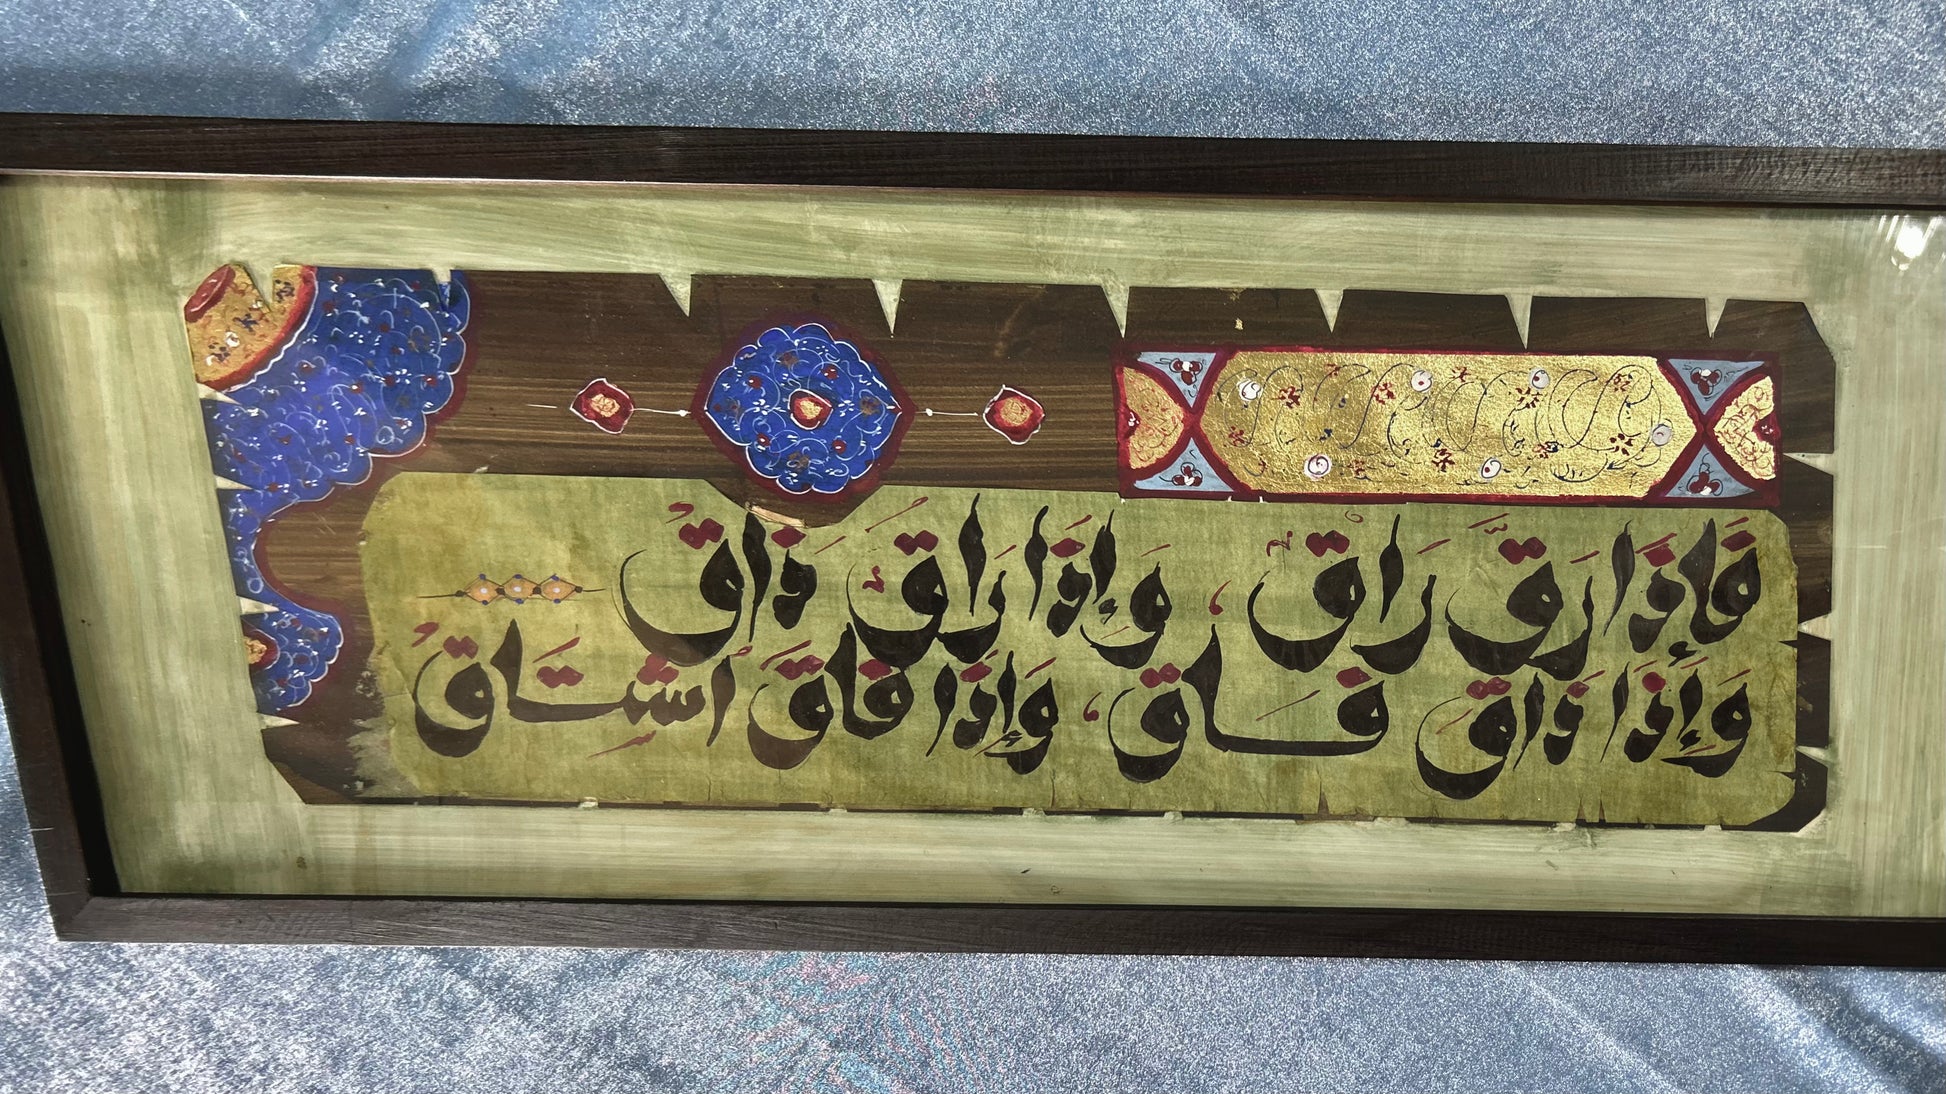 فَإِذَا رَقَّ رَاقَ، وَإِذَا رَاقَ ذَاقَ
وَإِذَا ذَاقَ فَاقَ، وَإِذَا فَاقَ اشْتَاقَ